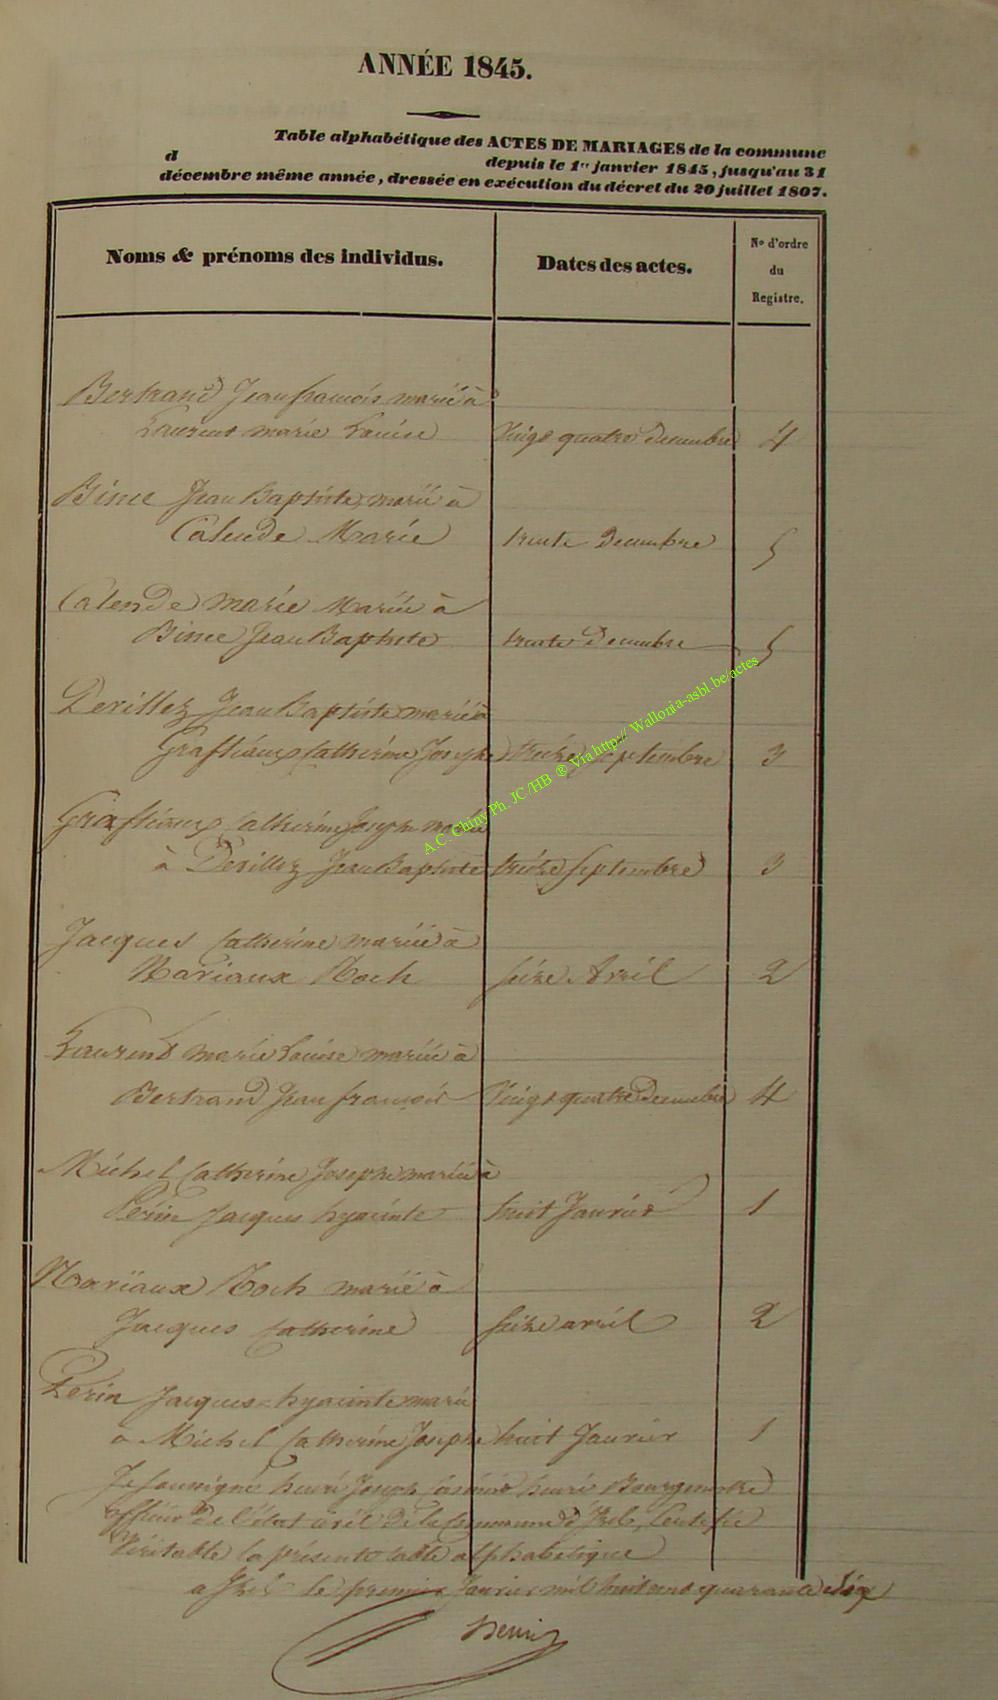 ANNÉE 1845.
Table alphabétique des ACTES DE MARIAGES de la commune
d depuis le 1er janvier 1845, jusqu'au 31
décembre même année, dressée en exécution du décret du 20 juillet 1807.
Noms & prénoms des individus. Dates des actes. No d'ordre du Registre.
Bertrand Jean françois marié à
Laurent marie Louise Vingt quatre decembre 4
Bince Jean Baptiste, marié à
Calende Marie trente Decembre 5
Calende marie Mariée à
Bince Jean Baptiste trente Decembre 5
Devillez Jean Baptiste marié à
Graftiaux Catherine Josephe treize septembre 3
Graftiaux Catherine Josephe mariée
à Devillez Jean Baptiste treize septembre 3
Jacques Catherine mariée à
Mariaux Roch seize Avril 2
Laurent marie Louise mariée à
Bertrand Jean françois Vingt quatre Decembre 4
Michel Catherine Josephe mariée à
Perin Jacques hyacinte huit Janvier 1
Mariaux Roch marié à
Jacques Catherine seize avril 2
Perin Jacques-hyacinte marié
a Michel Catherine Josephe huit Janvier 1
Je soussigné henri Joseph henri Bourgmestre
officier De l'état civil De la Commune d'Izel, Certifie
Véritable la présente table alphabetique
a Izel le premier Janvier mil huit cent quarante six
Henri
A.C. Chiny Ph. JC/HB ® Via http:// Wallonia-asbl.be/actes